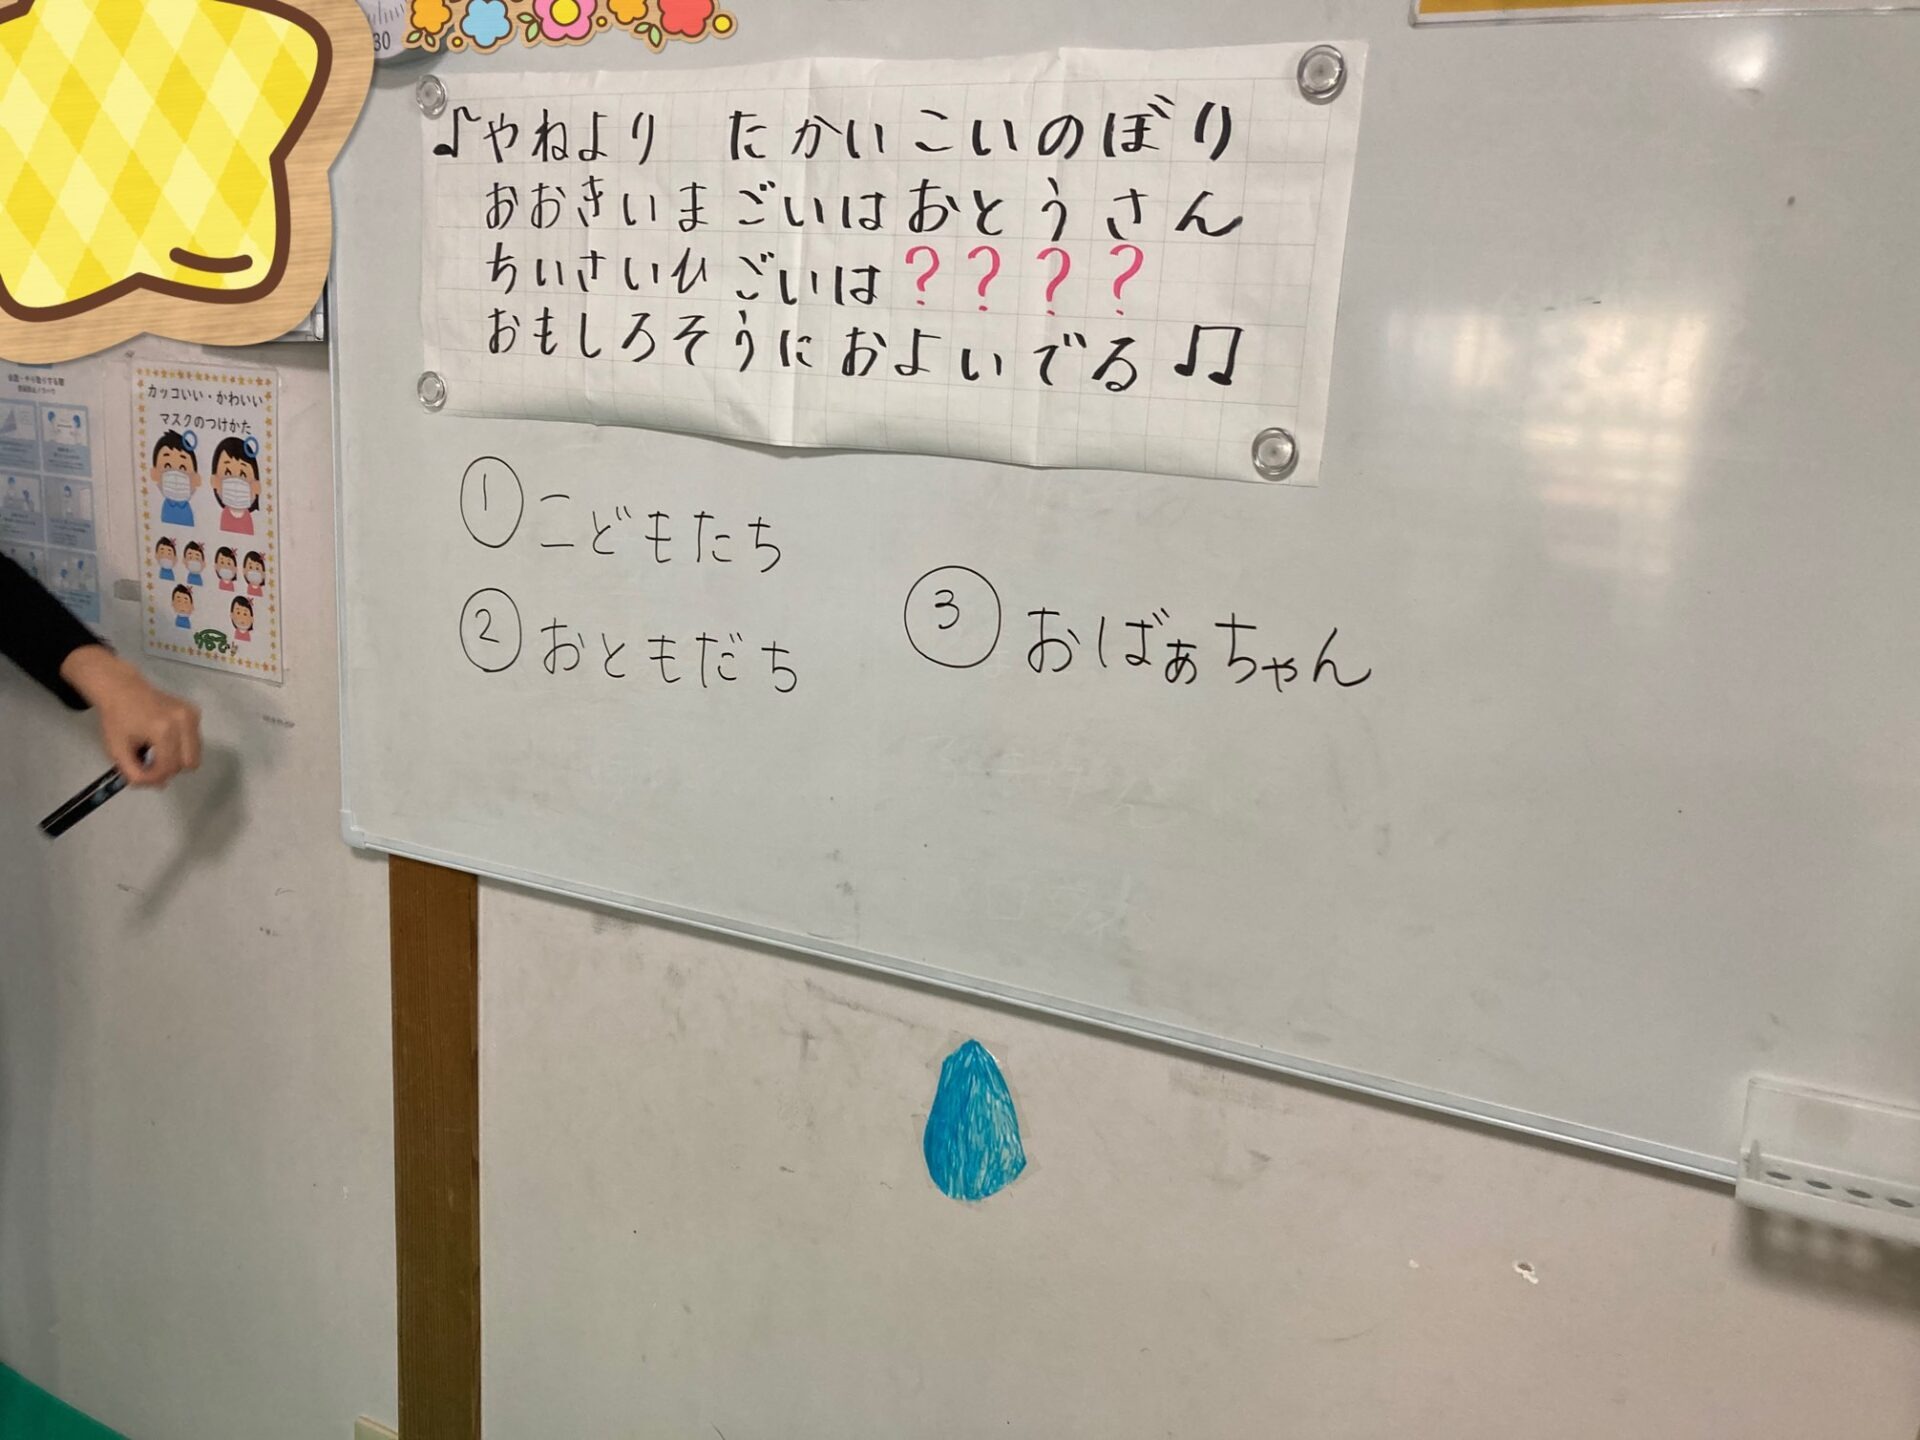 30
♪やねより たかいこいのぼり
おおきいまごいはおとうさん
ちいさいひごいは????
おもしろそうにおよいでる♫
①こどもたち
②おともだち
③おばぁちゃん
カッコいい・かわいい
マスクのつけかた